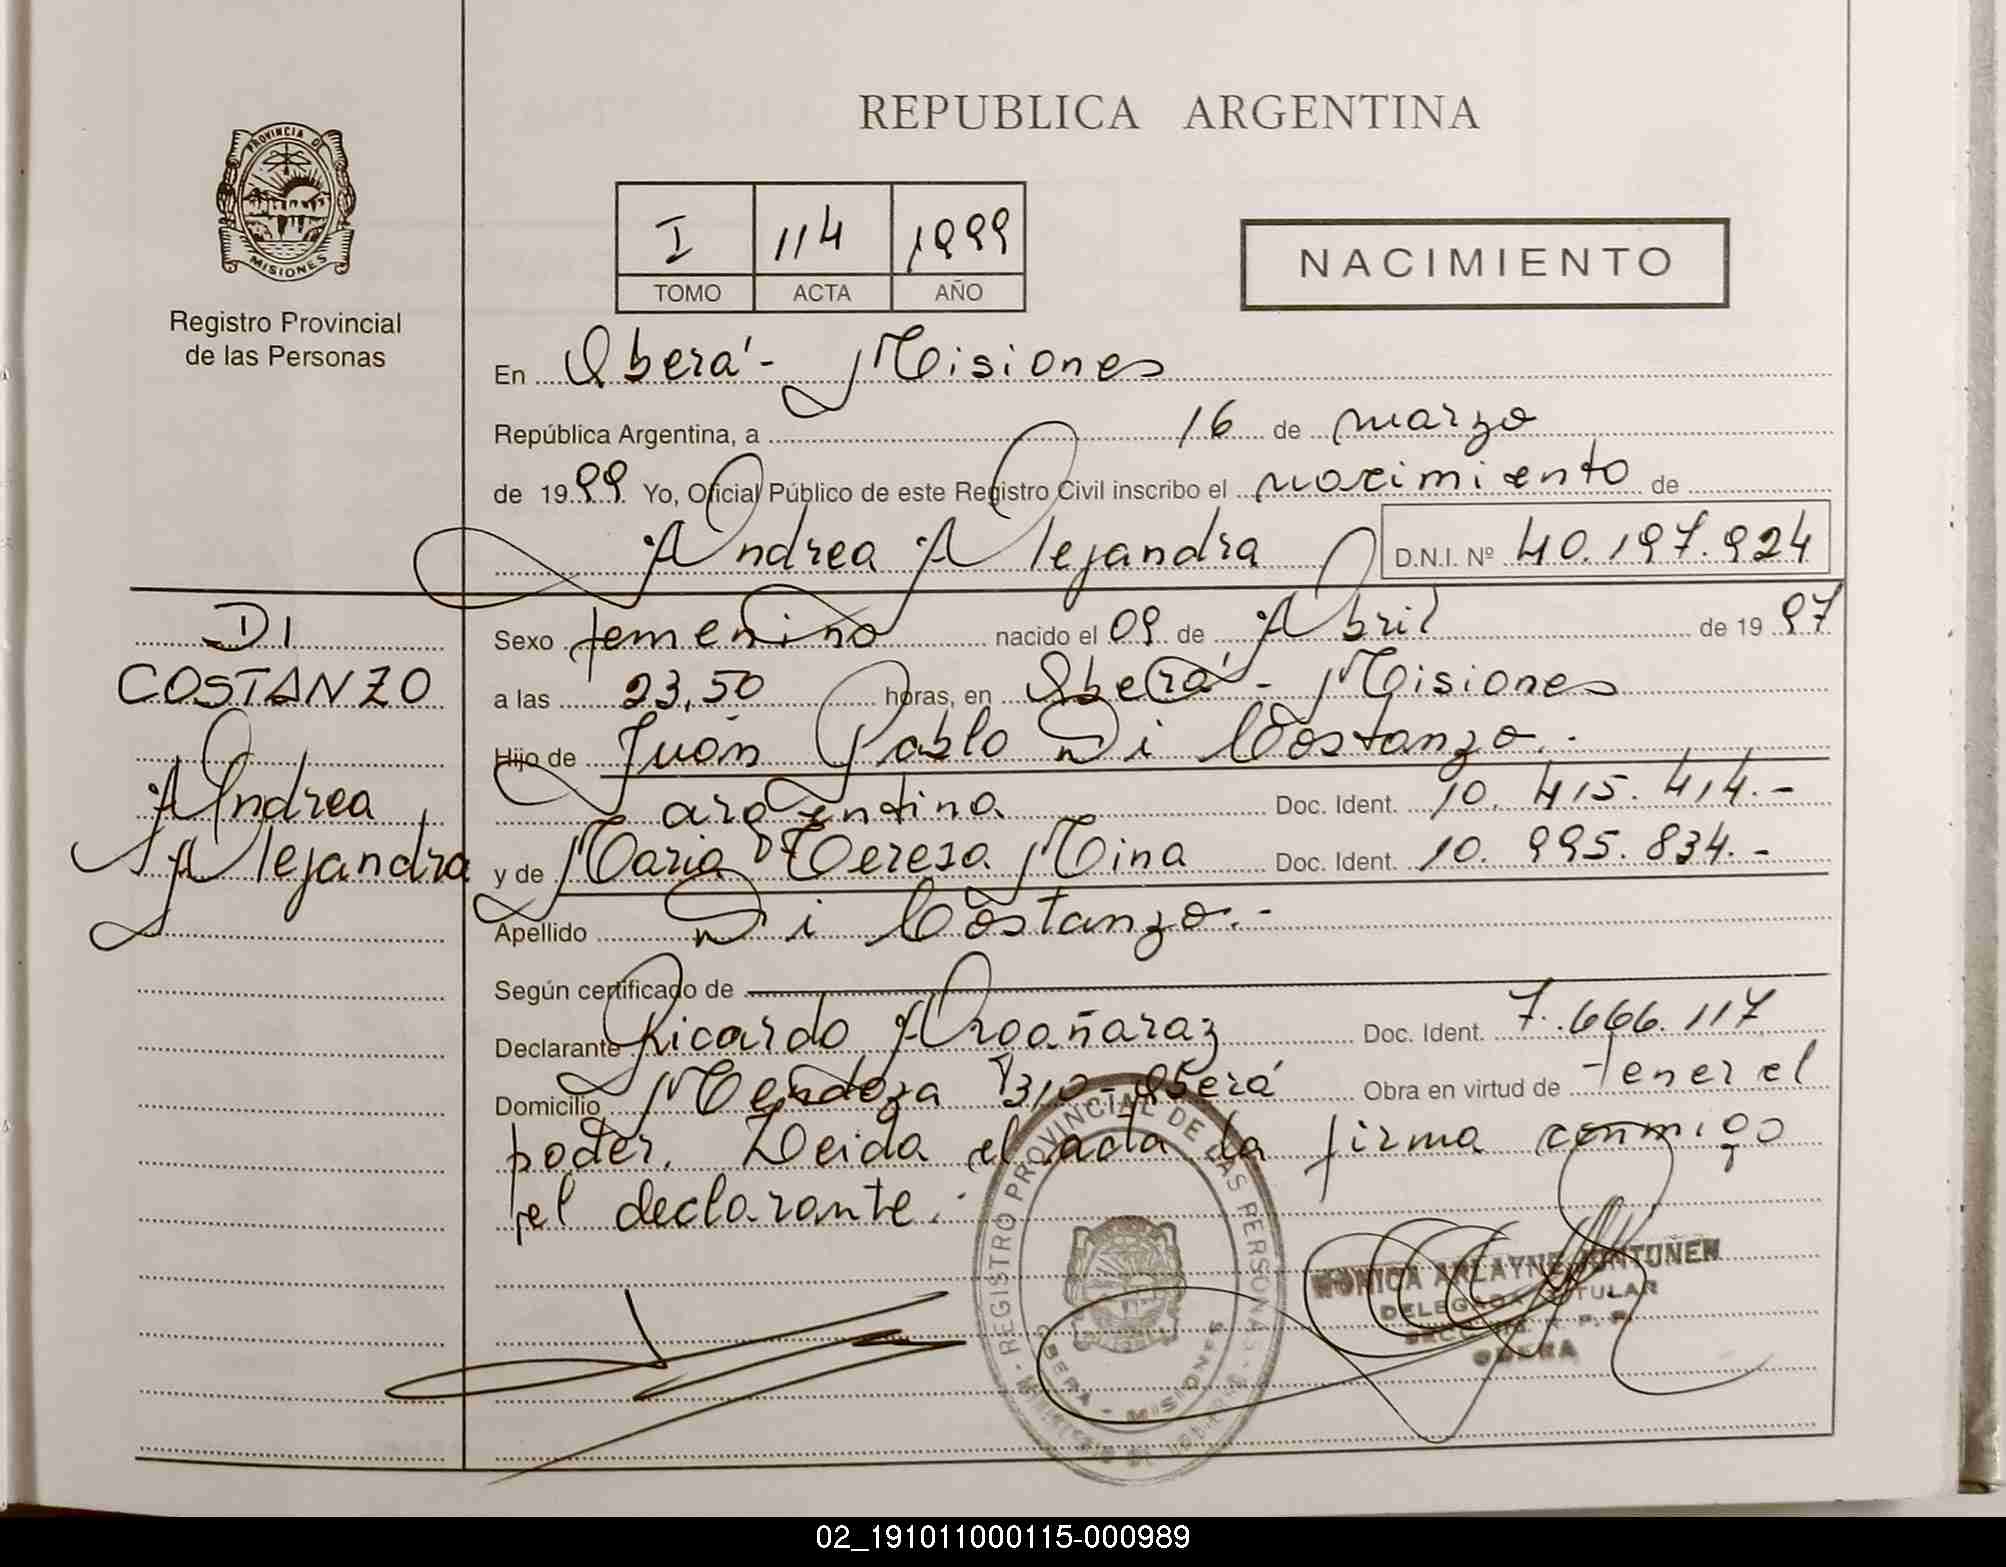 REPUBLICA ARGENTINA
PROVINCIA DE
MISIONES
Registro Provincial
de las Personas
I 114 1999
TOMO ACTA AÑO
NACIMIENTO
En Oberá - Misiones
República Argentina, a 16 de marzo
de 1999 Yo, Oficial Público de este Registro Civil inscribo el nacimiento de
Andrea Alejandra D.N.I. Nº 40.197.924
DI
COSTANZO
Andrea
Alejandra
Sexo femenino nacido el 09 de Abril de 1997
a las 23,50 horas, en Oberá - Misiones
Hijo de Juan Pablo Di Costanzo.-
argentina Doc. Ident. 10.415.414.-
y de Maria Teresa Mina Doc. Ident. 10.995.834.-
Apellido Di Costanzo.-
Según certificado de
Declarante Ricardo Argañaraz Doc. Ident. 7.666.117
Domicilio Mendoza 310 - Oberá Obra en virtud de tener el
poder. Leida el acta la firma conmigo
el declarante.
REGISTRO PROVINCIAL DE LAS PERSONAS
OBERA - MISIONES
MONICA ARLAYNE
DELEGADA TITULAR
OBERA
02_191011000115-000989